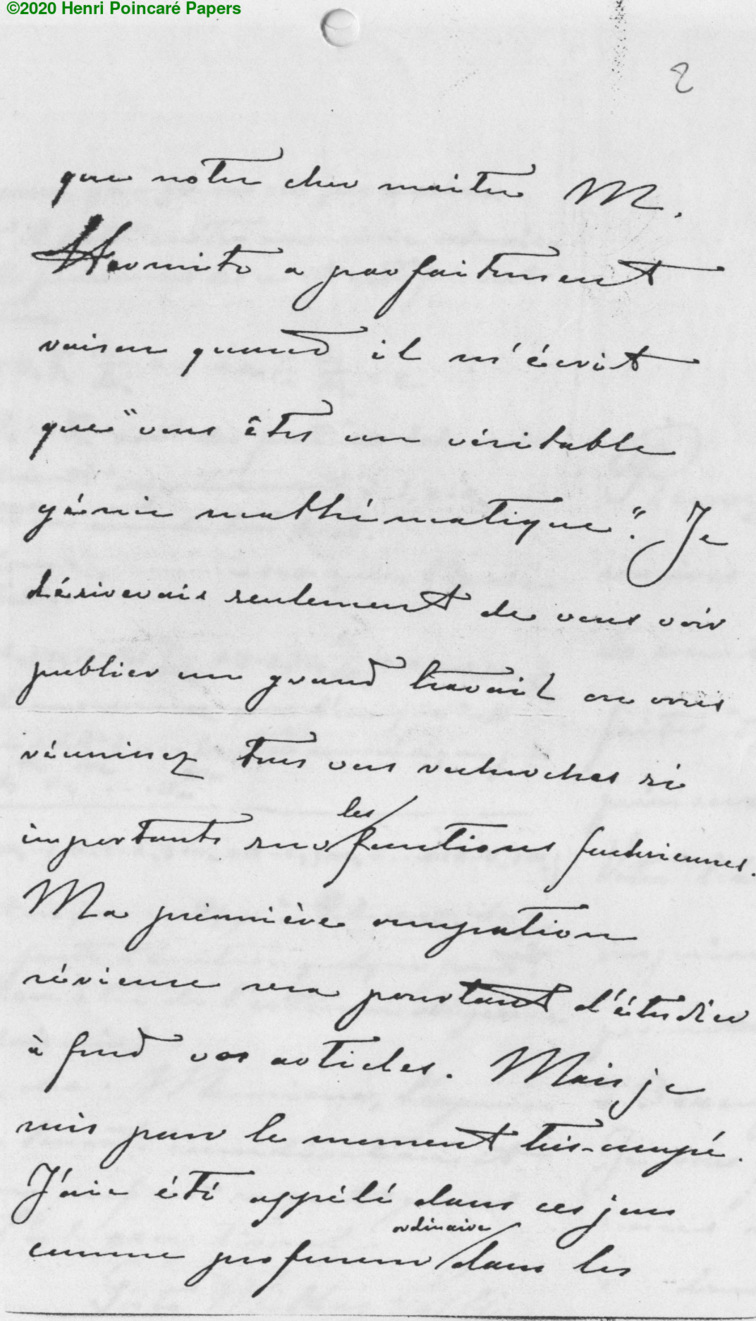 ©2020 Henri Poincaré Papers
2
que notre cher maitre M.
Hermite a parfaitement
raison quand il m'écrit
que "vous êtes un véritable
génie mathématique". Je
désirerais seulement de vous voir
publier un grand travail ou vous
réunissez tous vos recherches si
importants sur les fonctions fuchsiennes.
Ma première occupation
sérieuse sera pourtant d'étudier
à fond vos articles. Mais je
suis pour le moment très-occupé.
J'aie été appélé dans ces jours
comme professeur ordinaire dans les